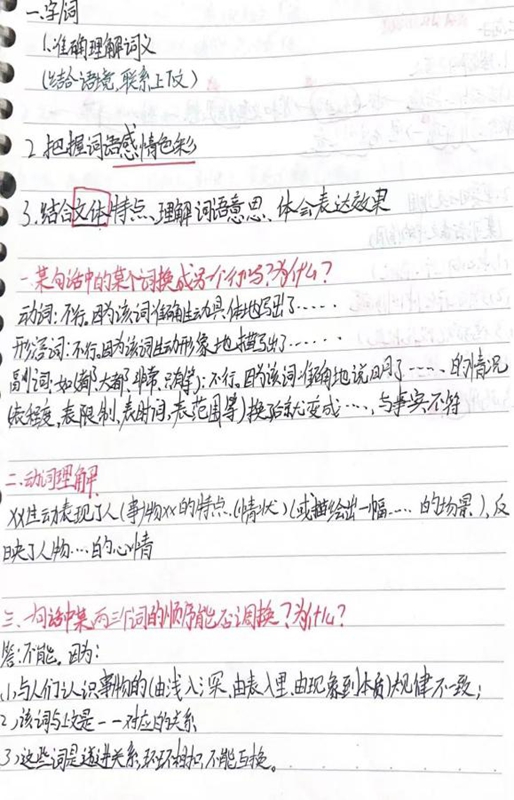 一.字词
1.准确理解词义
(结合语境,联系上下文)
2.把握词语感情色彩
3.结合文体特点、理解词语意思、体会表达效果
一.某句话中的某个词换成另一个行吗?为什么?
动词:不行.因为该词准确生动具体地写出了……
形容词:不行.因为该词生动形象地描写出了……
副词:如(都,大都,非常,只有等):不行.因为该词准确地说明了……的情况
(表程度,表限制,表时间,表范围等)换后就变成…,与事实不符
二.动词理解
XX生动表现了人(事)物XX的特点.(情状)(或描绘出一幅……的场景),反
映了人物…的心情
三.一句话中某两三个词的顺序能否调换?为什么?
答:不能.因为:
(1)与人们认识事物的(由浅入深、由表入里、由现象到本质)规律不一致;
2)该词与上文是一一对应的关系
3)这些词是递进关系,环环相扣,不能互换。